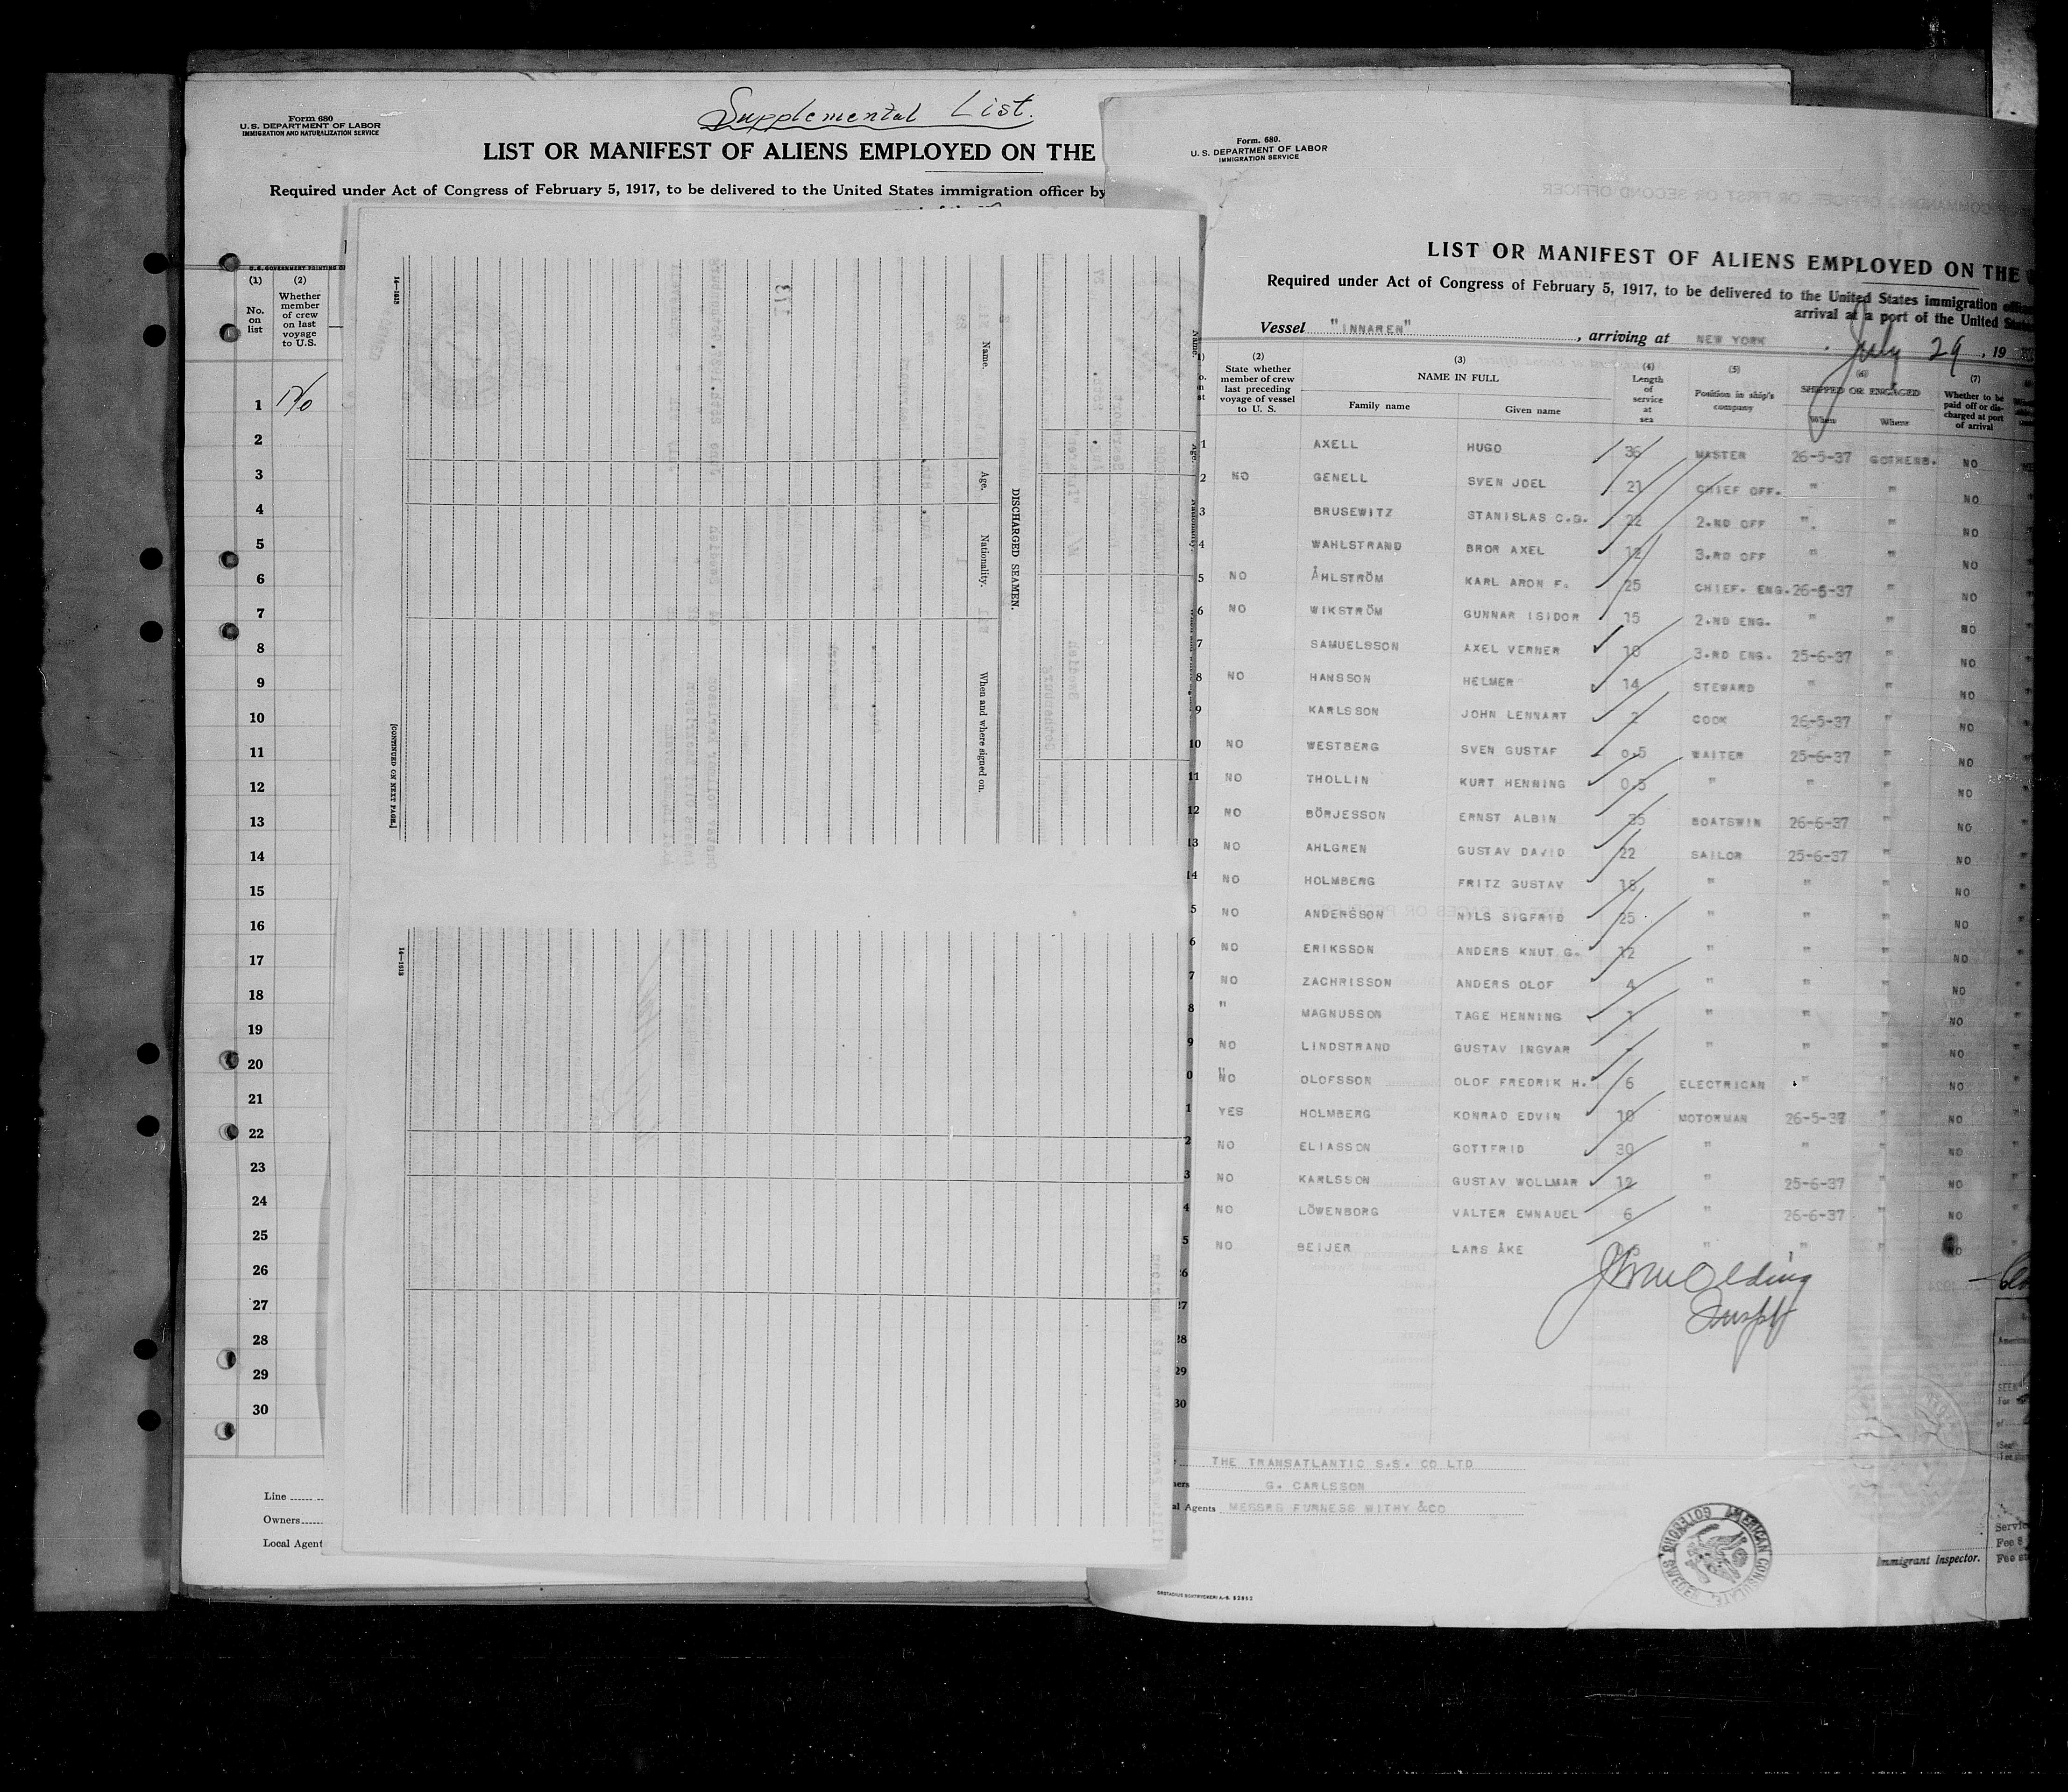 Supplemental List.
Form 680
U. S. DEPARTMENT OF LABOR
IMMIGRATION AND NATURALIZATION SERVICE
LIST OR MANIFEST OF ALIENS EMPLOYED ON THE
Required under Act of Congress of February 5, 1917, to be delivered to the United States immigration officer by
(1) (2)
No. on list
Whether member of crew on last voyage to U.S.
1 No
2
3
4
5
6
7
8
9
10
11
12
13
14
15
16
17
18
19
20
21
22
23
24
25
26
27
28
29
30
Line
Owners
Local Agent
DISCHARGED SEAMEN.
Name. Age. Nationality. When and where signed on.
[CONTINUED ON NEXT PAGE.]
Form. 680.
U. S. DEPARTMENT OF LABOR
IMMIGRATION SERVICE
LIST OR MANIFEST OF ALIENS EMPLOYED ON THE
Required under Act of Congress of February 5, 1917, to be delivered to the United States immigration
arrival at a port of the United
Vessel "INNAREN", arriving at NEW YORK July 29, 19
(2) (3) (4) (5) (6) (7)
State whether member of crew last preceding voyage of vessel to U. S.
NAME IN FULL
Family name Given name
Length of service at sea
Position in ship's company
SHIPPED OR ENGAGED
When Where
Whether to be paid off or discharged at port of arrival
1 AXELL HUGO 36 MASTER 26-5-37 GOTHENB. NO
2 NO GENELL SVEN JOEL 21 CHIEF OFF. " " NO
3 BRUSEWITZ STANISLAS C.G. 22 2.ND OFF " " NO
4 WAHLSTRAND BROR AXEL 12 3.RD OFF " " NO
5 NO ÅHLSTRÖM KARL ARON F. 25 CHIEF. ENG. 26-5-37 " NO
6 NO WIKSTRÖM GUNNAR ISIDOR 15 2.ND ENG. " " NO
7 SAMUELSSON AXEL VERNER 10 3.RD ENG. 25-6-37 " NO
8 NO HANSSON HELMER 14 STEWARD " " NO
9 KARLSSON JOHN LENNART 2 COOK 26-5-37 " NO
10 NO WESTBERG SVEN GUSTAF 0.5 WAITER 25-6-37 " NO
11 NO THOLLIN KURT HENNING 0.5 " " " NO
12 NO BÖRJESSON ERNST ALBIN 35 BOATSWIN 26-6-37 " NO
13 NO AHLGREN GUSTAV DAVID 22 SAILOR 25-6-37 " NO
14 NO HOLMBERG FRITZ GUSTAV 18 " " " NO
5 NO ANDERSSON NILS SIGFRID 25 " " " NO
6 NO ERIKSSON ANDERS KNUT G. 12 " " " NO
7 NO ZACHRISSON ANDERS OLOF 4 " " " NO
8 " MAGNUSSON TAGE HENNING 1 " " " NO
9 NO LINDSTRAND GUSTAV INGVAR - " " " NO
0 NO OLOFSSON OLOF FREDRIK H. 6 ELECTRICAN " " NO
1 YES HOLMBERG KONRAD EDVIN 10 MOTORMAN 26-5-37 " NO
2 NO ELIASSON GOTTFRID 30 " " " NO
3 NO KARLSSON GUSTAV WOLLMAR 12 " 25-6-37 " NO
4 NO LÖWENBORG VALTER EMNAUEL 6 " 26-6-37 " NO
5 NO BEIJER LARS ÅKE " " " NO
26
27
28
29
30
THE TRANSATLANTIC S.S. CO LTD
G. CARLSSON
Agents MESSRS FURNESS WITHY &CO
AMERICAN CONSULATE GOTEBORG, SWEDEN
Immigrant Inspector.